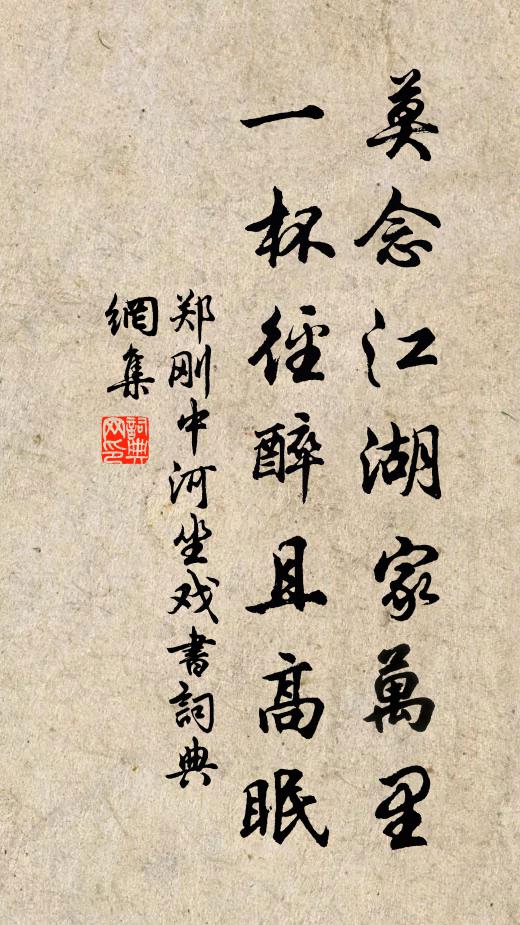 莫念江湖家萬里
一杯徑醉且高眠
郑刚中河坐戏書詞典
網集
詞典
网印